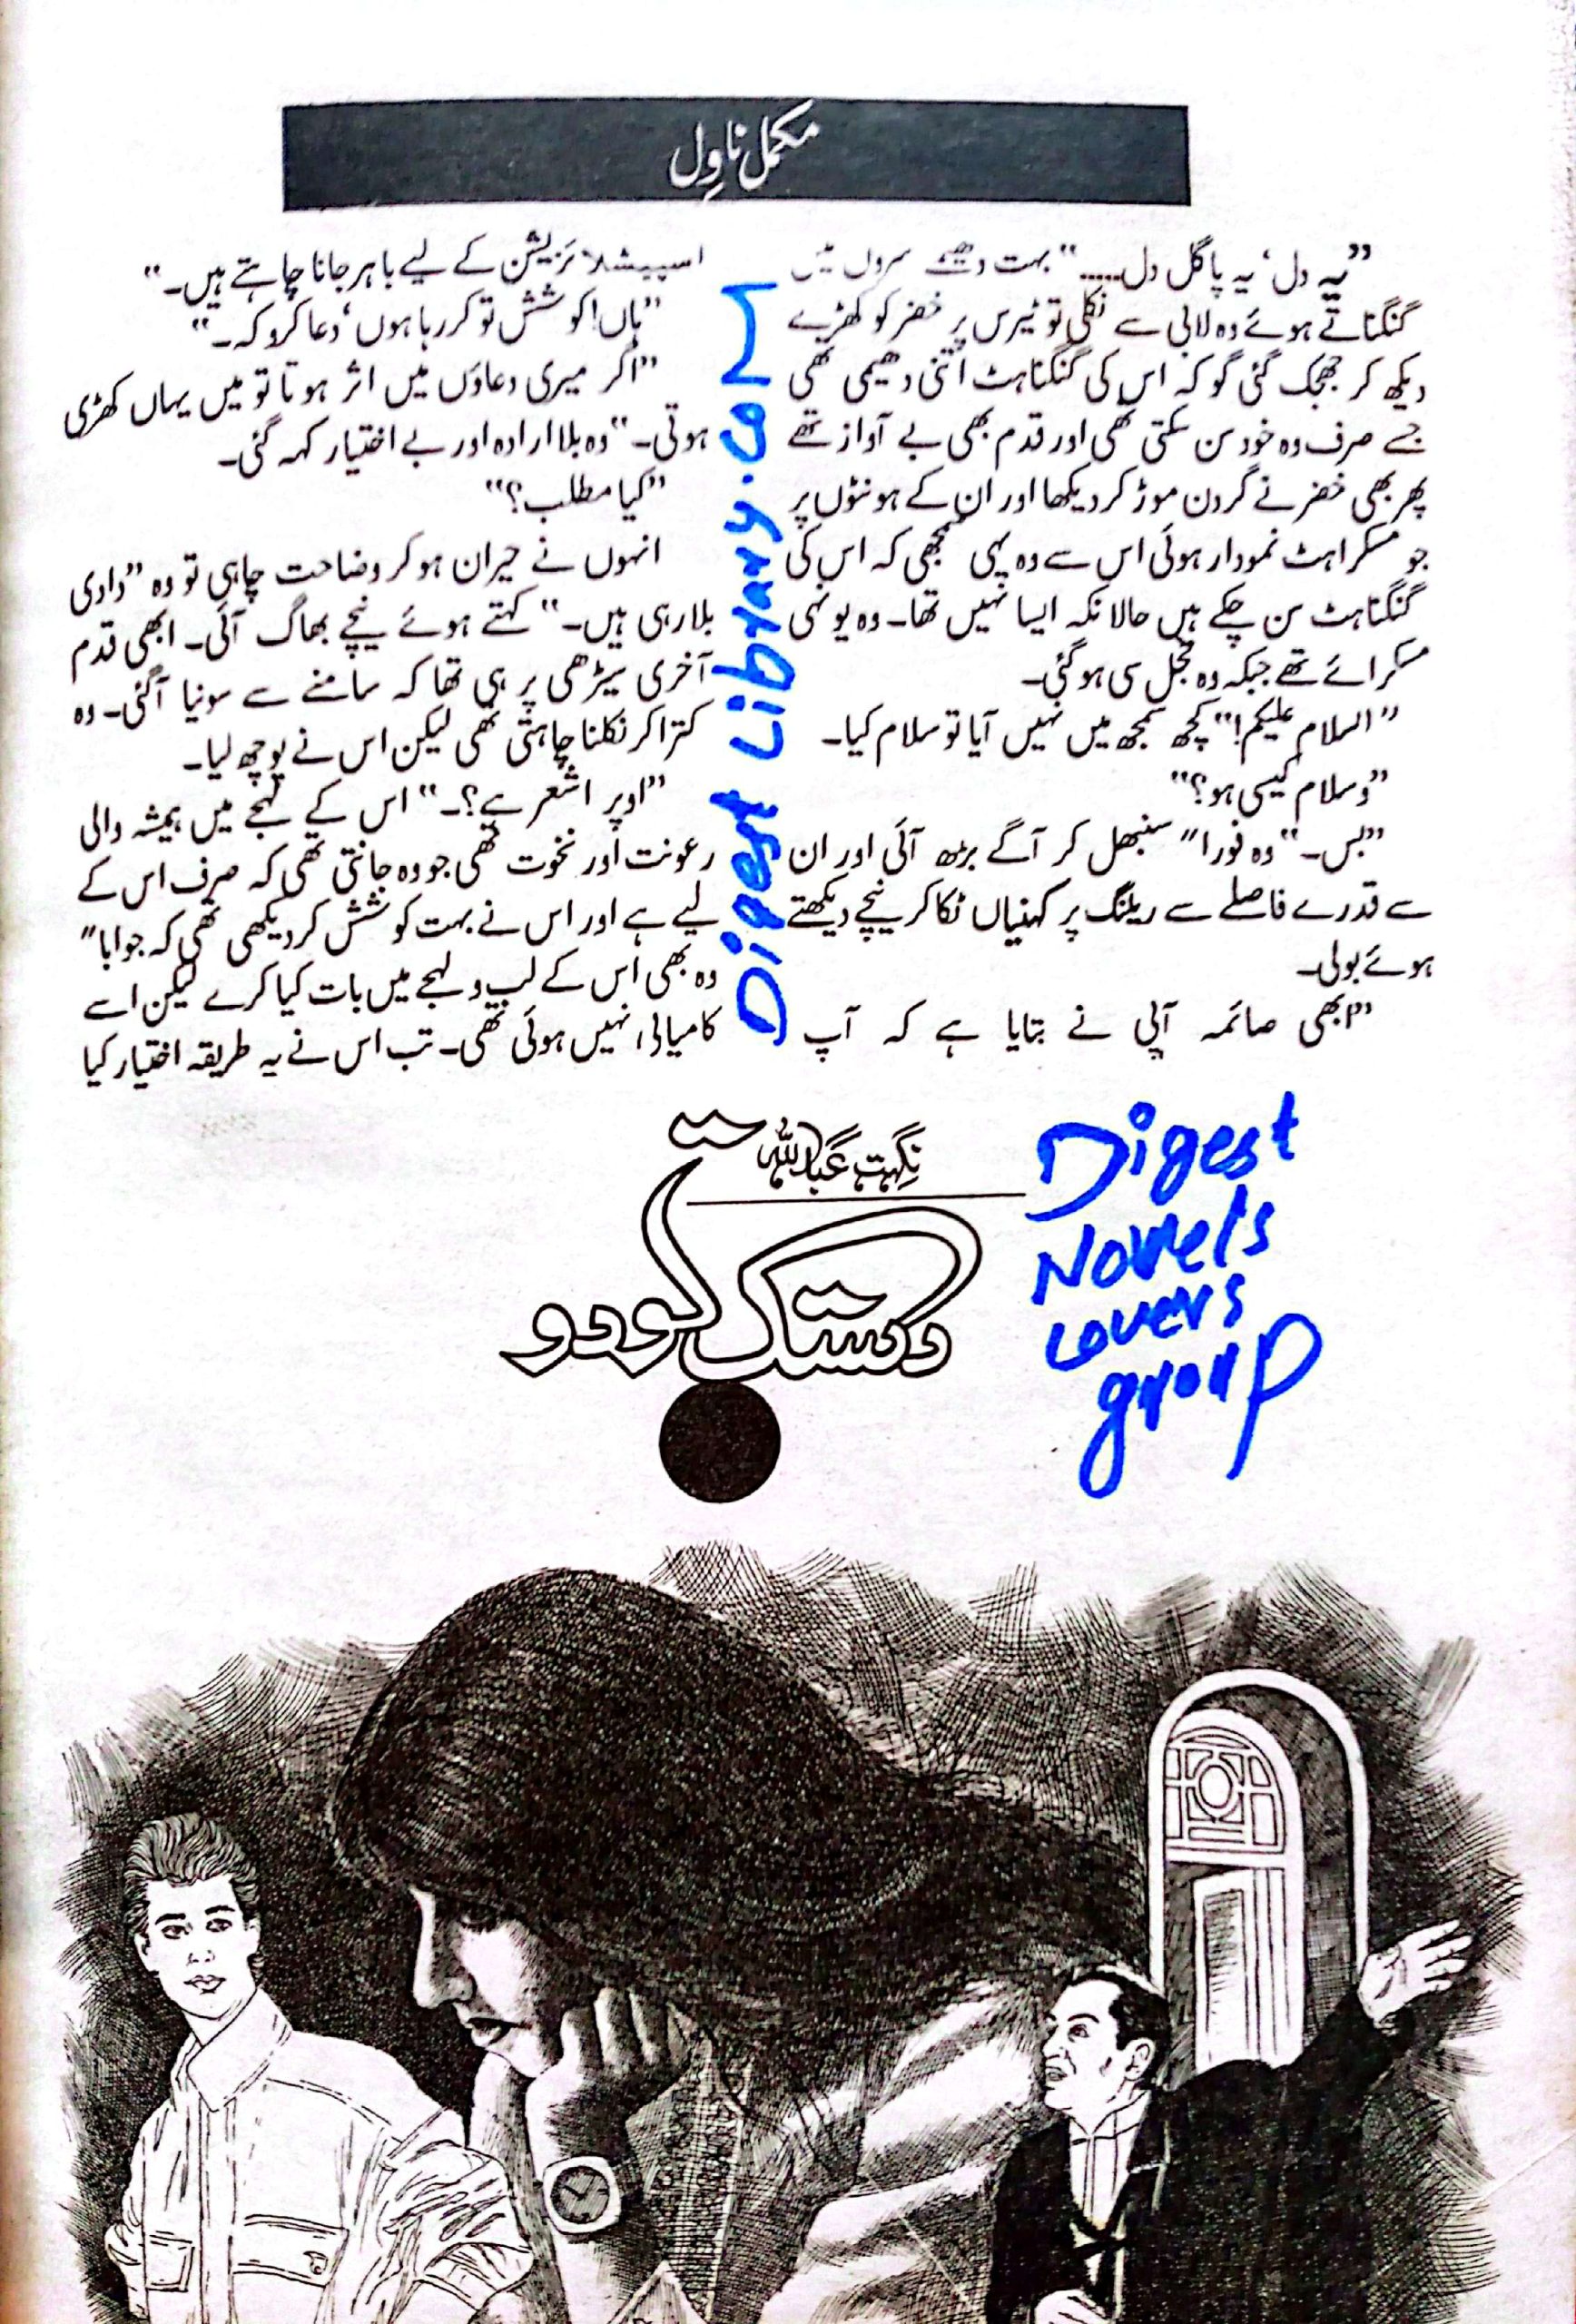 مکمل ناول
”یہ دل‘ یہ پاگل دل.....“ بہت دھیمے سروں میں
گنگناتے ہوئے وہ لابی سے نکلی تو ٹیرس پر خضر کو کھڑے
دیکھ کر جھجک گئی گو کہ اس کی گنگناہٹ اتنی دھیمی تھی
جسے صرف وہ خود سن سکتی تھی اور قدم بھی بے آواز تھے
پھر بھی خضر نے گردن موڑ کر دیکھا اور ان کے ہونٹوں پر
جو مسکراہٹ نمودار ہوئی اس سے وہ یہی سمجھی کہ اس کی
گنگناہٹ سن چکے ہیں حالانکہ ایسا نہیں تھا۔ وہ یونہی
مسکرائے تھے جبکہ وہ خجل سی ہو گئی۔
”السلام علیکم!“ کچھ سمجھ میں نہیں آیا تو سلام کیا۔
”وسلام کیسی ہو؟“
”بس۔“ وہ فورا“ سنبھل کر آگے بڑھ آئی اور ان
سے قدرے فاصلے سے ریلنگ پر کہنیاں ٹکا کر نیچے دیکھتے
ہوئے بولی۔
”ابھی صائمہ آپی نے بتایا ہے کہ آپ
اسپیشلائزیشن کے لیے باہر جانا چاہتے ہیں۔“
”ہاں! کوشش تو کر رہا ہوں‘ دعا کرو کہ۔“
”اگر میری دعاؤں میں اثر ہوتا تو میں یہاں کھڑی
ہوتی۔“ وہ بلا ارادہ اور بے اختیار کہہ گئی۔
”کیا مطلب؟“
انہوں نے حیران ہو کر وضاحت چاہی تو وہ ”دادی
بلا رہی ہیں۔“ کہتے ہوئے نیچے بھاگ آئی۔ ابھی قدم
آخری سیڑھی پر ہی تھا کہ سامنے سے سونیا آگئی۔ وہ
کترا کر نکلنا چاہتی تھی لیکن اس نے پوچھ لیا۔
”اوپر اشعر ہے؟۔“ اس کے لہجے میں ہمیشہ والی
رعونت اور نخوت تھی جو وہ جانتی تھی کہ صرف اس کے
لیے ہے اور اس نے بہت کوشش کر دیکھی تھی کہ جوابا“
وہ بھی اس کے لب و لہجے میں بات کیا کرے لیکن اسے
کامیابی نہیں ہوئی تھی۔ تب اس نے یہ طریقہ اختیار کیا
Digest Library.com
نگہت عبداللہ
دستک تو دو
Digest
Novels
Lovers
group